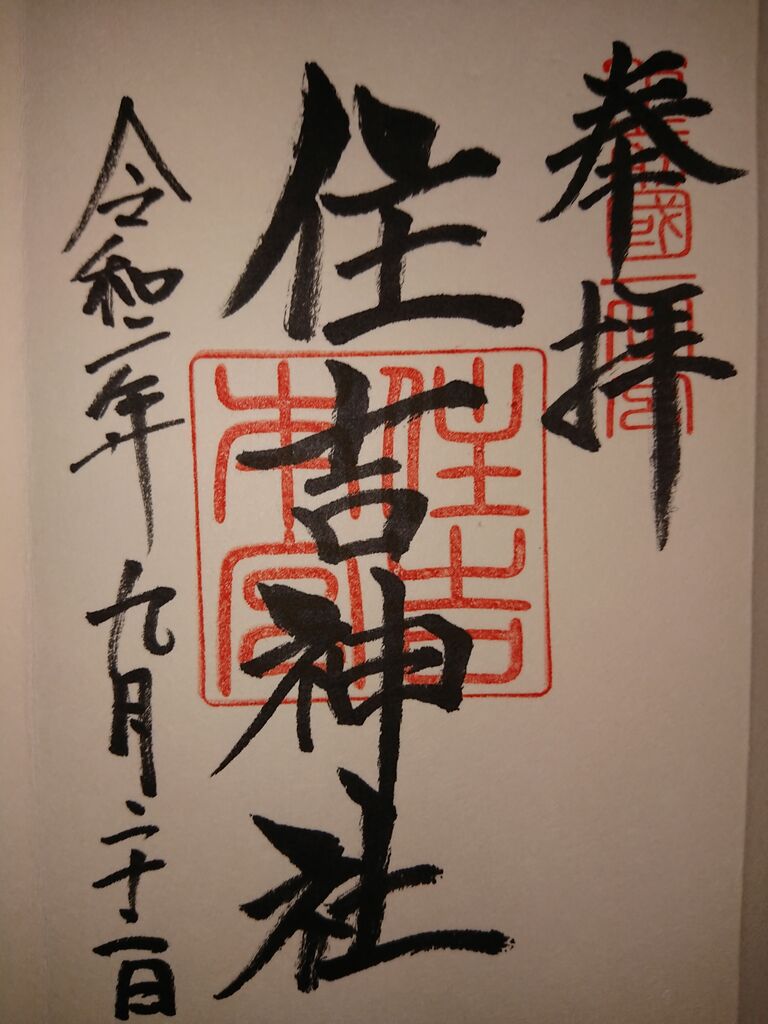 奉拝
國一
住吉神社
住吉
本宮
令和二年九月二十一日